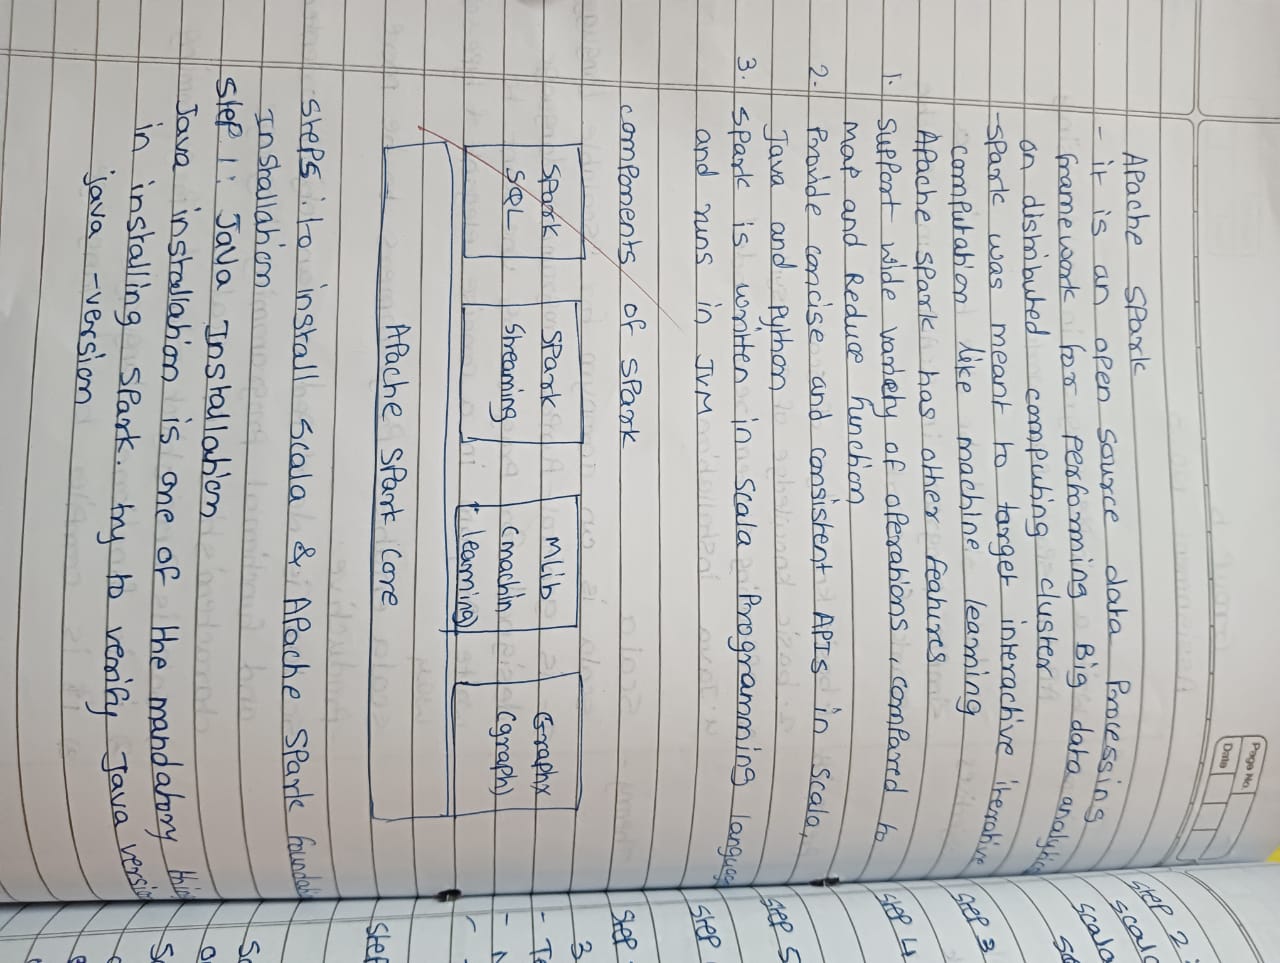 Page No.
Date
Apache Spark
- it is an open source data Processing
framework for performing Big data analytics
on distributed computing cluster
- Spark was meant to target interactive iterative
computation like machine learning
Apache spark has other features
1. Support wide variety of operations, compared to
Map and Reduce function
2. Provide concise and consistent APIs in Scala,
Java and Python
3. Spark is written in Scala Programming language
and runs in JVM
components of Spark
Spark
SQL
Spark
Streaming
MLib
(machin
learning)
Graphx
(graph)
Apache Spark Core
Steps: to install Scala & Apache Spark
Installation
Step 1: Java Installation
Java installation is one of the mandatory
in installing Spark. try to verify Java version
java -version
Step 2
Step 3
Step 4
Step 5
Step
Step
3
Step